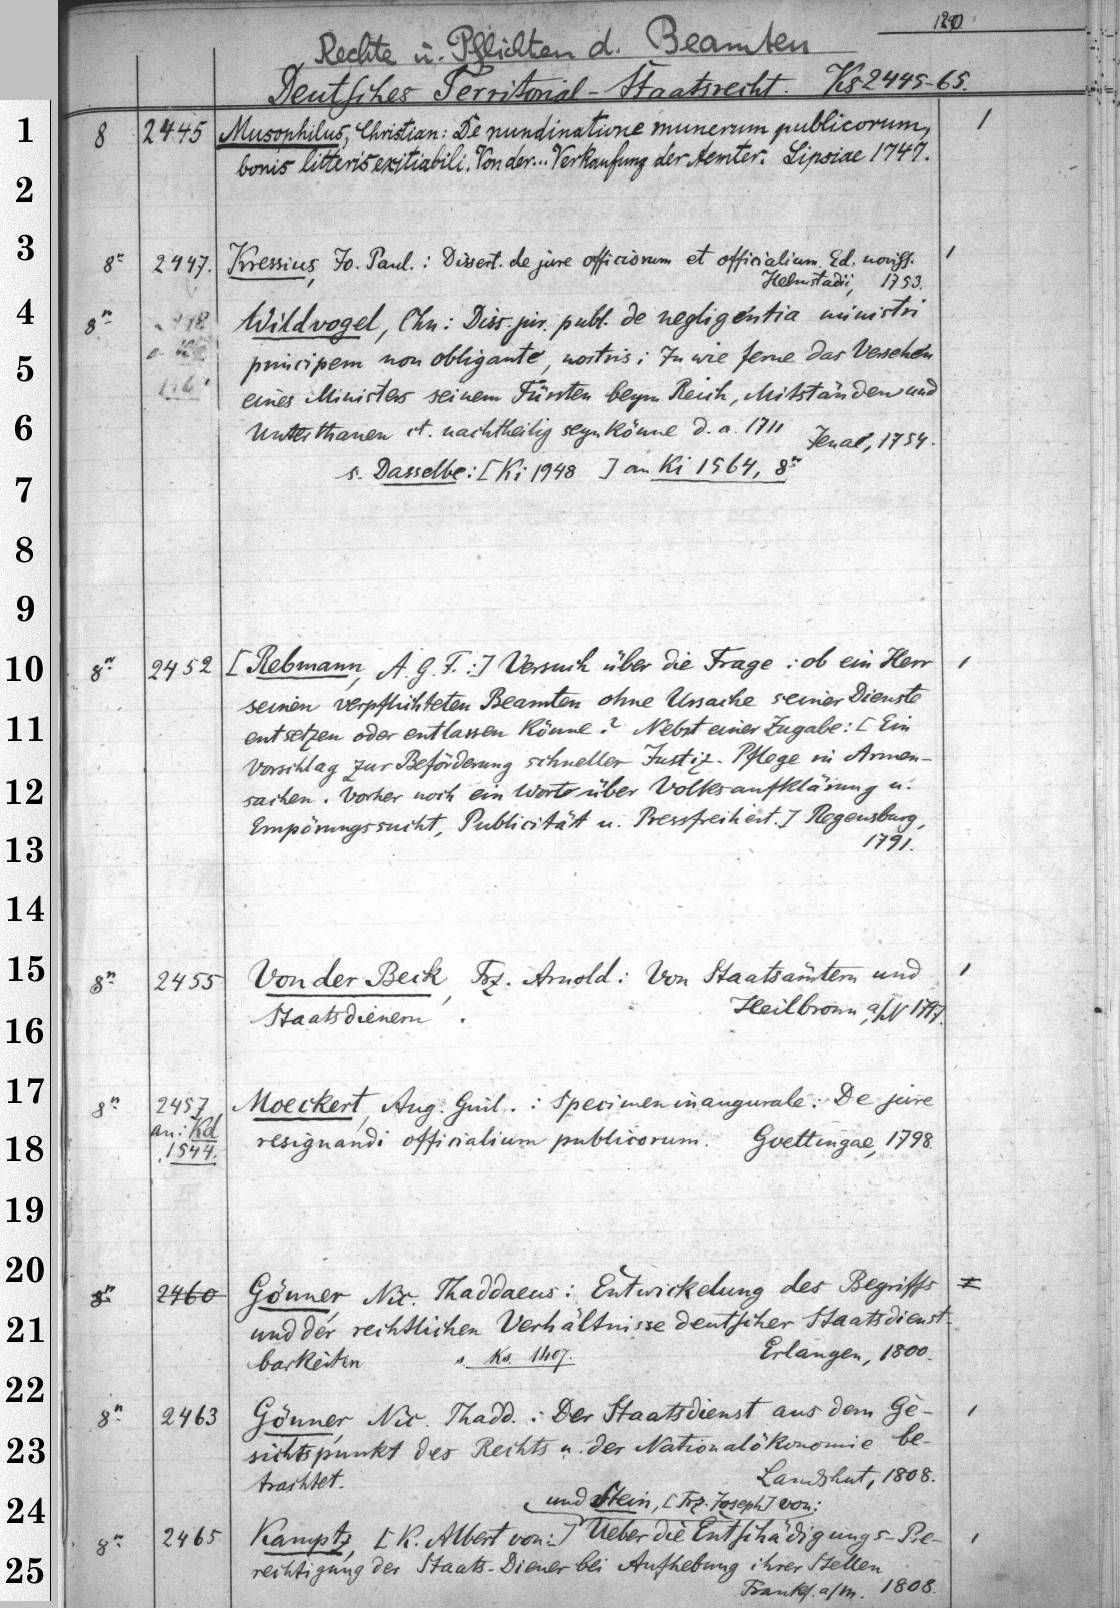 120
Rechte u. Pflichten d. Beamten
Deutsches Territorial-Staatsrecht. Ks 2445-65.
1
8 2445 Musophilus, Christian: De nundinatione munerum publicorum, 1
bonis litteris exitiabili. Von der... Verkaufung der Aemter. Lipsiae 1747.
2
3
8n 2447. Kressius, Jo. Paul.: Dissert. de jure officiorum et officialium. Ed. noviss. 1
Helmstadii, 1753.
4
8n Wildvogel, Chn: Diss. jur. publ. de negligentia ministri
principem non obligante, nostris: In wie ferne das Versehen
5
eines Ministers seinem Fürsten beym Reich, Mitständen und
6
Unterthanen et. nachtheilig seyn könne d. a. 1711 Jenae, 1754.
s. Dasselbe: [Ki 1948 ] an Ki 1564, 8n
7
8
9
10
8n 2452 [Rebmann, A. G. F.:] Versuch über die Frage: ob ein Herr 1
seinen verpflichteten Beamten ohne Ursache seiner Dienste
11
entsetzen oder entlassen könne? Nebst einer Zugabe: [Ein
Vorschlag zur Beförderung schneller Justiz-Pflege in Armen-
12
sachen. Vorher noch ein Wort über Volksaufklärung u.
Empörungssucht, Publicität u. Pressfreiheit.] Regensburg,
13
1791.
14
15
8n 2455 Von der Beck, Frz. Arnold: Von Staatsämtern und 1
Staatsdienern. Heilbronn a/N 1797.
16
17
8n 2457 Moeckert, Aug. Guil.: Specimen inaugurale: De jure
an: Kd
resignandi officialium publicorum. Goettingae, 1798.
1544.
18
19
20
8n 2460 Gönner, Nic. Thaddaeus: Entwickelung des Begriffs 1
21
und der rechtlichen Verhältnisse deutscher Staatsdienst-
barkeiten s. Ks. 1407. Erlangen, 1800.
22
8n 2463 Gönner, Nic. Thadd.: Der Staatsdienst aus dem Ge- 1
23
sichtspunkt des Rechts u. der Nationalökonomie be-
trachtet. Landshut, 1808.
24
und Stein, [Frz. Joseph] von:
8n 2465 Kamptz, [K. Albert von:] Ueber die Entschädigungs-Be- 1
25
rechtigung der Staats-Diener bei Aufhebung ihrer Stellen
Frankf. a/M. 1808.